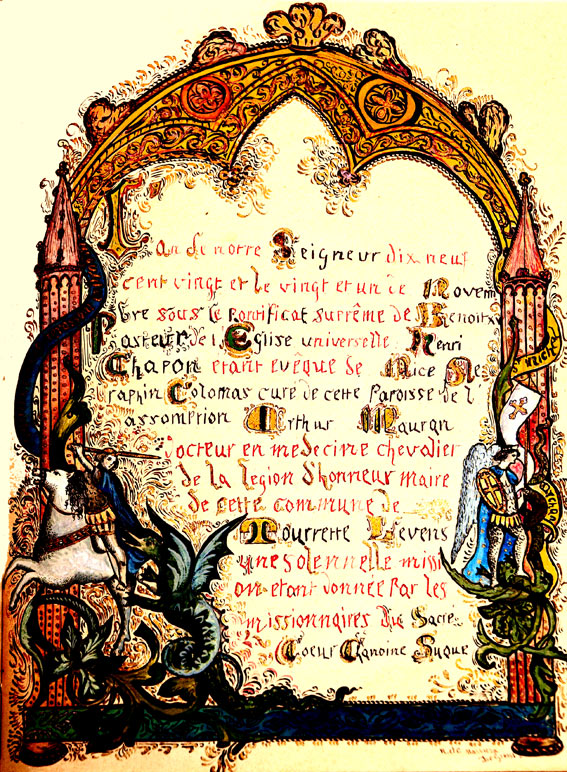 L'an de notre Seigneur dix neuf
cent vingt et le vingt et un de Novem
bre sous le pontificat suprême de Benoit XV
Pasteur de l'Eglise universelle Henri
Chapon etant evêque de Nice Se
raphin Colomas curé de cette Paroisse de l
assomption Arthur Mauran
docteur en medecine chevalier
de la legion d'honneur maire
de cette commune de
Tourrette Levens
une solennelle missi
on etant donnée Par les
missionnaires du Sacré
Coeur Chanoine Suque